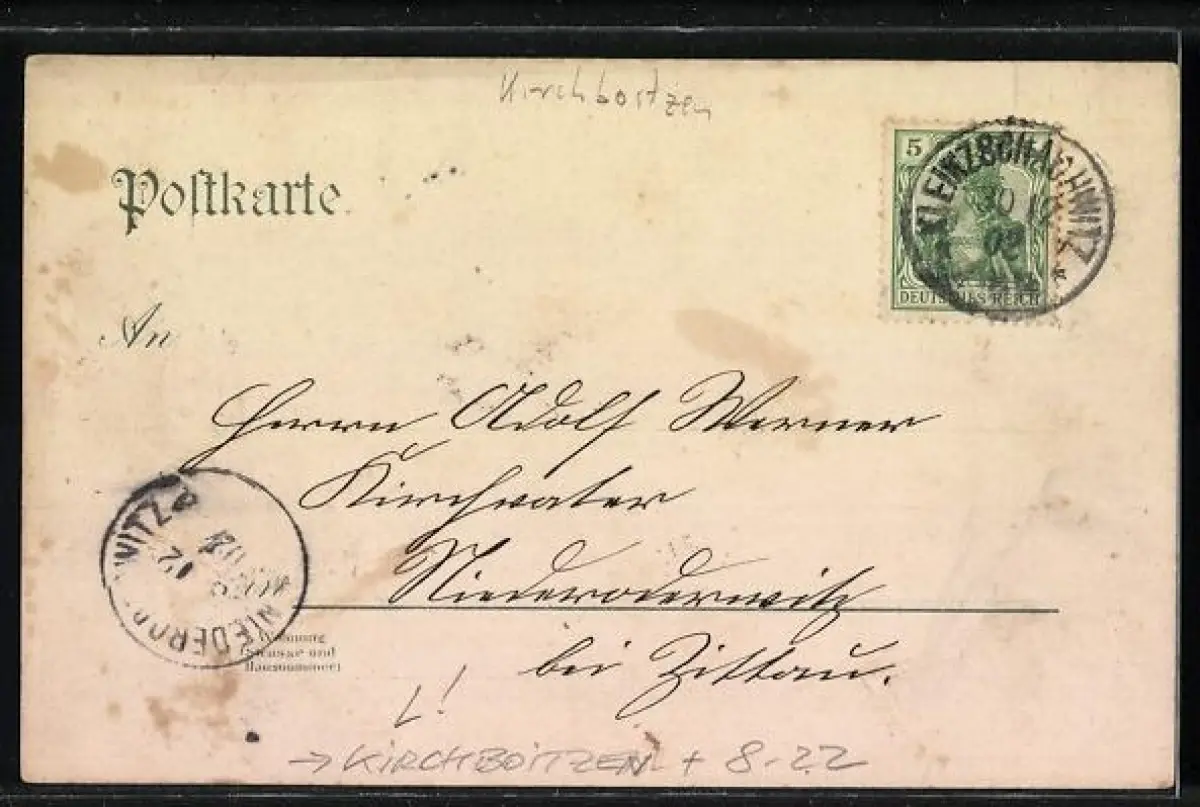 Kirchboitzen
Postkarte
5
DEUTSCHES REICH
KLEINZSCHACHWITZ
02
An
Herrn Adolf Werner
Kirchvater
Niederoderwitz
bei Zittau.
Wohnung
(Strasse und
Hausnummer)
L!
→ KIRCHBOITZEN + 8-22